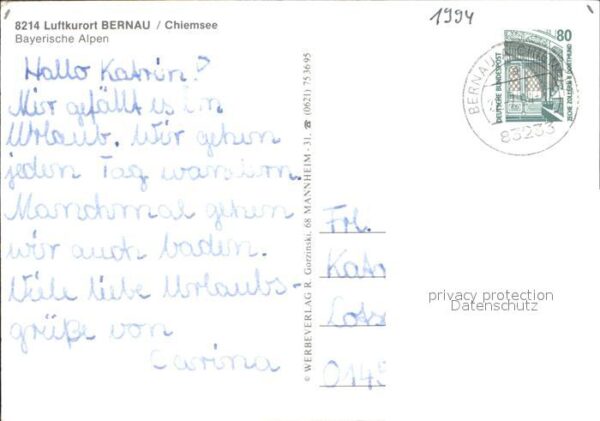 8214 Luftkurort BERNAU / Chiemsee
Bayerische Alpen
1994
Hallo Katrin!
Mir gefällt es im
Urlaub. Wir gehen
jeden Tag wandern.
Manchmal gehen
wir auch baden.
Viele liebe Urlaubs-
grüße von
Carina
© WERBEVERLAG R. Gorzinski, 68 MANNHEIM-31, ☎ (0621) 753695
80
DEUTSCHE BUNDESPOST
ZECHE ZOLLERN II · DORTMUND
BERNAU A CHIEMSEE
83233
Frl.
Katr
Lots
0145
privacy protection
Datenschutz